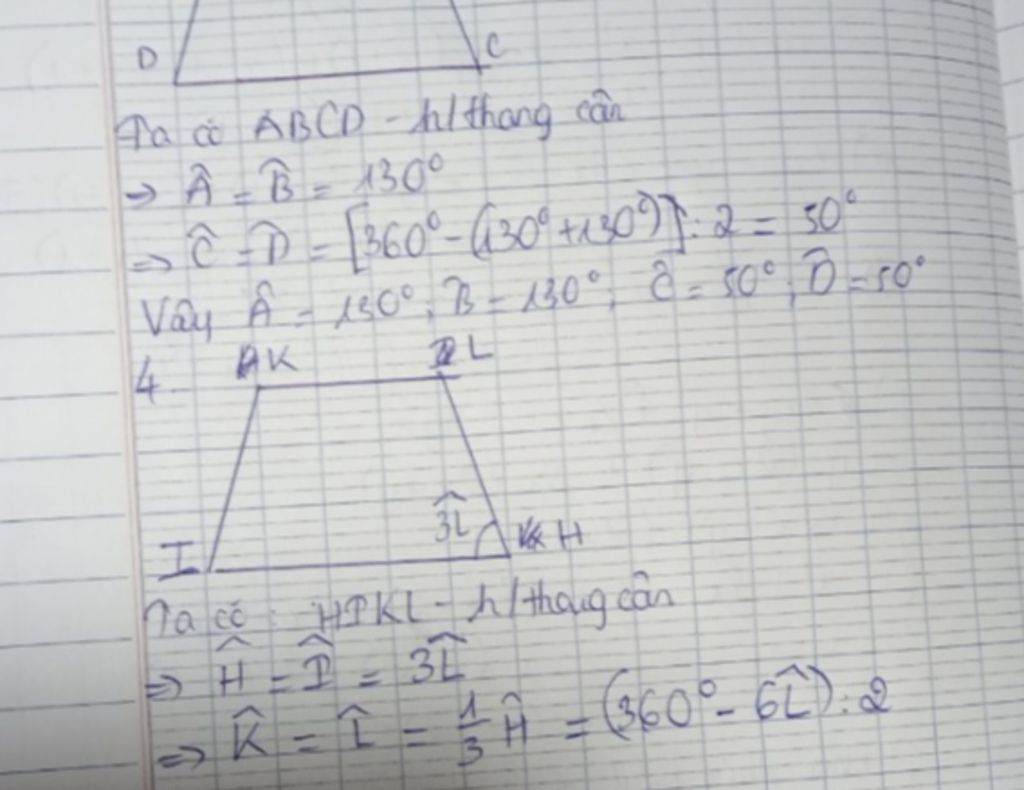 D C
Ta có ABCD - h/thang cân
⇒ Â = B̂ = 130°
⇒ Ĉ = D̂ = [360° - (130° + 130°)] : 2 = 50°
Vậy Â = 130°; B̂ = 130°; Ĉ = 50°; D̂ = 50°
4. K L
3L̂
I H
Ta có: HIKL - h/thang cân
⇒ Ĥ = Î = 3L̂
⇒ K̂ = L̂ = 1/3 Ĥ = (360° - 6L̂) : 2